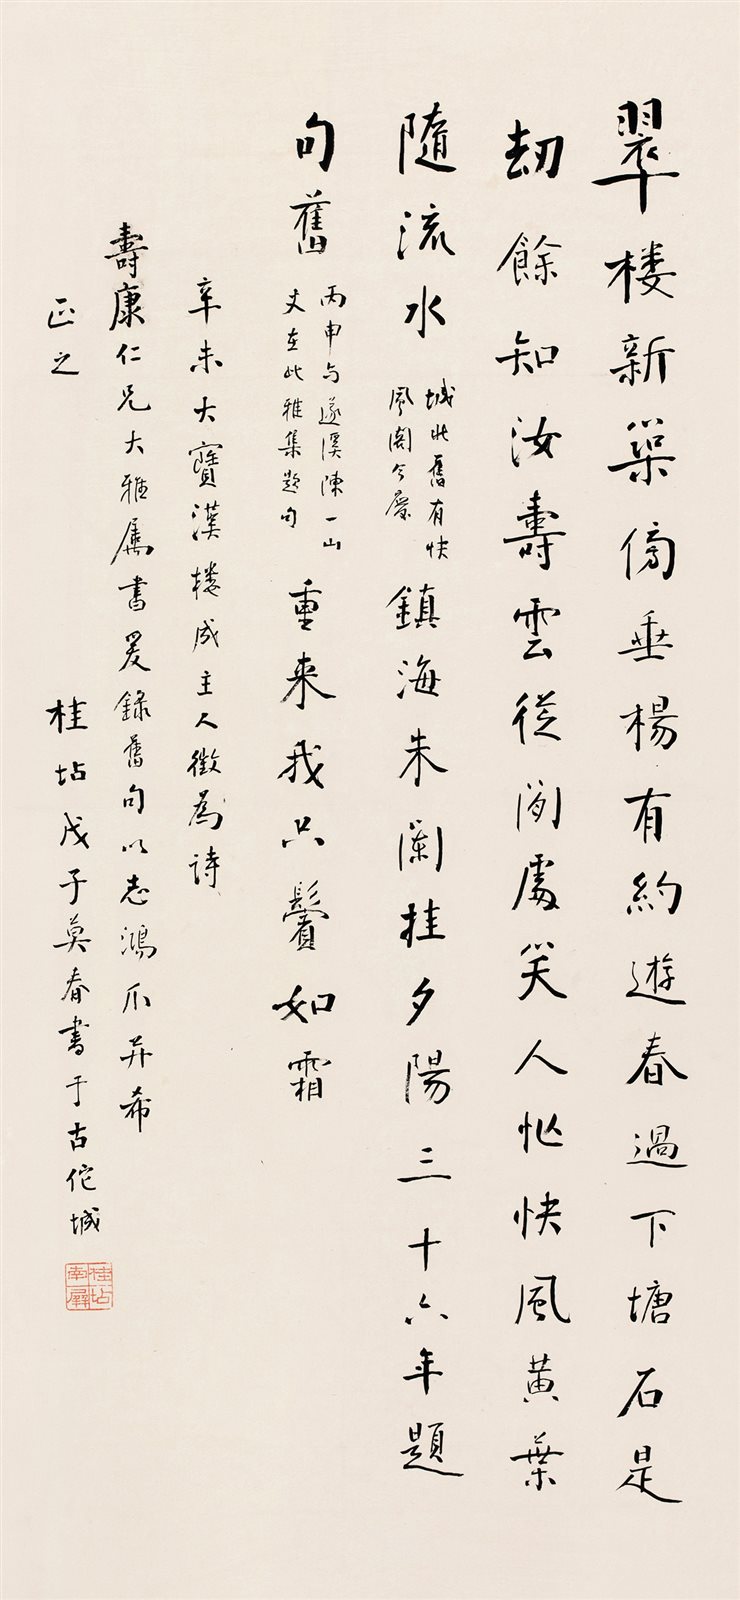 翠楼新築傍垂楊有約遊春過下塘石是
劫餘知汝壽雲從閒處笑人忙快風黃葉
隨流水
城北舊有快
風閣今廢
鎮海朱闌挂夕陽三十六年題
句舊
丙申与遂溪陳一山
丈在此雅集題句
重来我只鬢如霜
辛未大寶漢楼成主人徵為詩
壽康仁兄大雅属書爰錄舊句以志鴻爪并希
正之
桂坫戊子莫春書于古佗城
桂坫
南屏